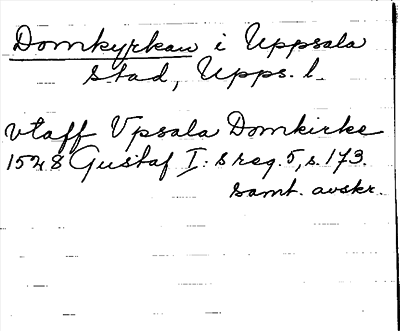 Domkyrkan i Uppsala
stad, Upps. l.
vtaff Vpsala Domkirke
1528 Gustaf I: s reg. 5, s. 173.
samt. avskr.